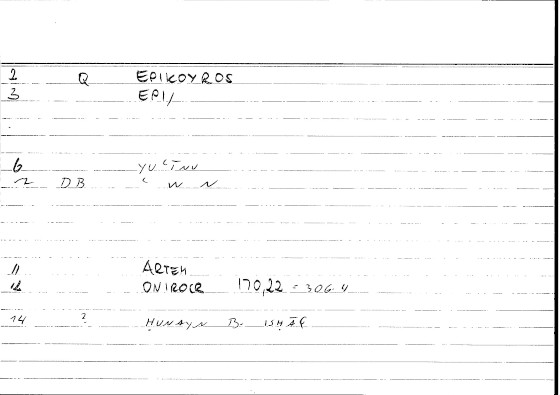 2 Q EPIKOYROS
3 EPI/
6 YU‘TNU
DB ‘ W N
11 ARTEM
12 ONIROCR 170,22 = 306.4
14 ? ḤUNAYN B. ISḤĀQ